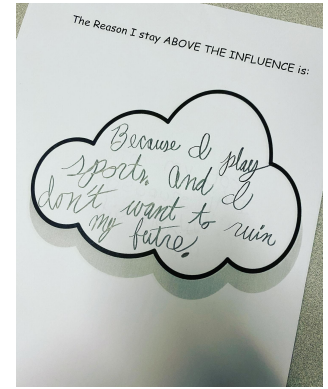 The Reason I stay ABOVE THE INFLUENCE is:
Because I play
sports. and I
don't want to ruin
my futre.